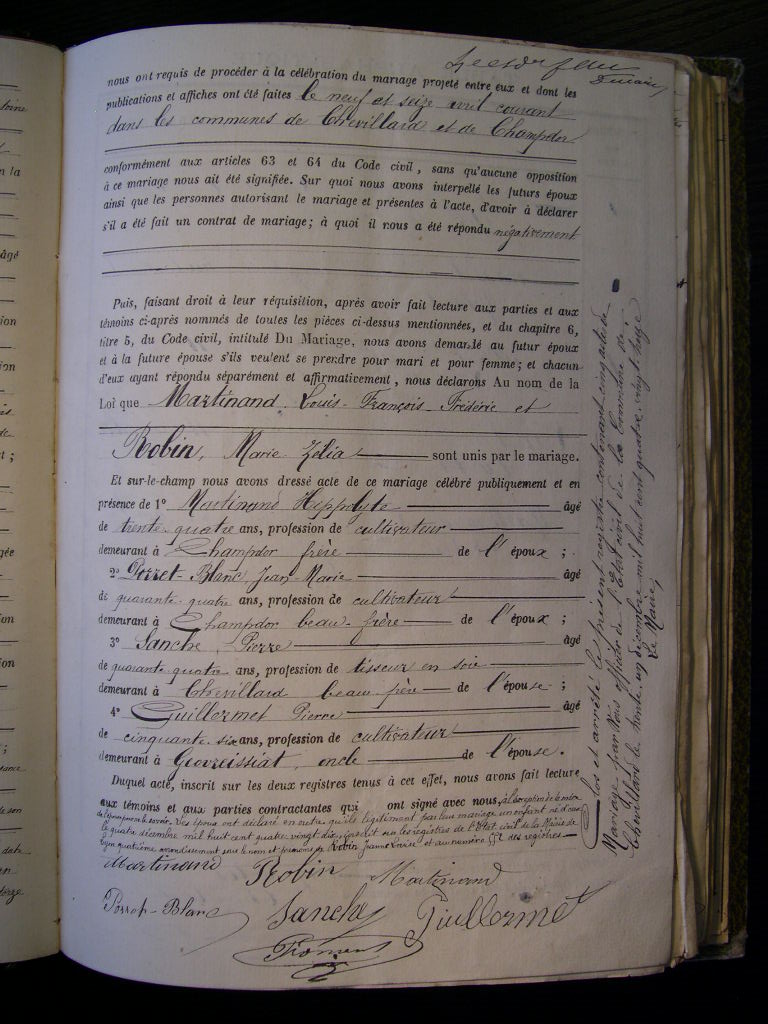 nous ont requis de procéder à la célébration du mariage projeté entre eux et dont les
publications et affiches ont été faites le neuf et seize avril courant
dans les communes de Chevillard et de Champdor
conformément aux articles 63 et 64 du Code civil, sans qu'aucune opposition
à ce mariage nous ait été signifiée. Sur quoi nous avons interpellé les futurs époux
ainsi que les personnes autorisant le mariage et présentes à l'acte, d'avoir à déclarer
s'il a été fait un contrat de mariage; à quoi il nous a été répondu négativement
Puis, faisant droit à leur réquisition, après avoir fait lecture aux parties et aux
témoins ci-après nommés de toutes les pièces ci-dessus mentionnées, et du chapitre 6,
titre 5, du Code civil, intitulé Du Mariage, nous avons demandé au futur époux
et à la future épouse s'ils veulent se prendre pour mari et pour femme; et chacun
d'eux ayant répondu séparément et affirmativement, nous déclarons Au nom de la
Loi que Martinand Louis-François-Frédéric et
Robin, Marie Zélia sont unis par le mariage.
Et sur-le-champ nous avons dressé acte de ce mariage célébré publiquement et en
présence de 1° Martinand Hippolyte âgé
de trente-quatre ans, profession de cultivateur
demeurant à Champdor frère de l'époux;
2° Porret-Blanc Jean-Marie âgé
de quarante-quatre ans, profession de cultivateur
demeurant à Champdor beau-frère de l'époux;
3° Sanche Pierre âgé
de quarante-quatre ans, profession de tisseur en soie
demeurant à Chevillard beau-père de l'épouse;
4° Guillermet Pierre âgé
de cinquante-six ans, profession de cultivateur
demeurant à Geovreissiat, oncle de l'épouse.
Duquel acte, inscrit sur les deux registres tenus à cet effet, nous avons fait lecture
aux témoins et aux parties contractantes qui ont signé avec nous, à l'exception de la mère
de l'époux pour ne savoir. Les époux ont déclaré en outre qu'ils légitiment par leur mariage un enfant né d'eux
le quatre décembre mil huit cent quatre-vingt-dix, inscrit sur les registres de l'Etat civil de la Mairie de
Lyon quatrième arrondissement sous le nom et prénoms de Robin Jeanne Louise et au numéro des registres
Martinand Robin Martinand
Porret-Blanc Sanche Guillermet
Froment
Clos et arrêté le présent registre contenant cinq actes de
Mariage par Nous officier de l'Etat civil de la Commune de
Chevillard le trente-un décembre mil huit cent quatre-vingt-treize
Le Maire,